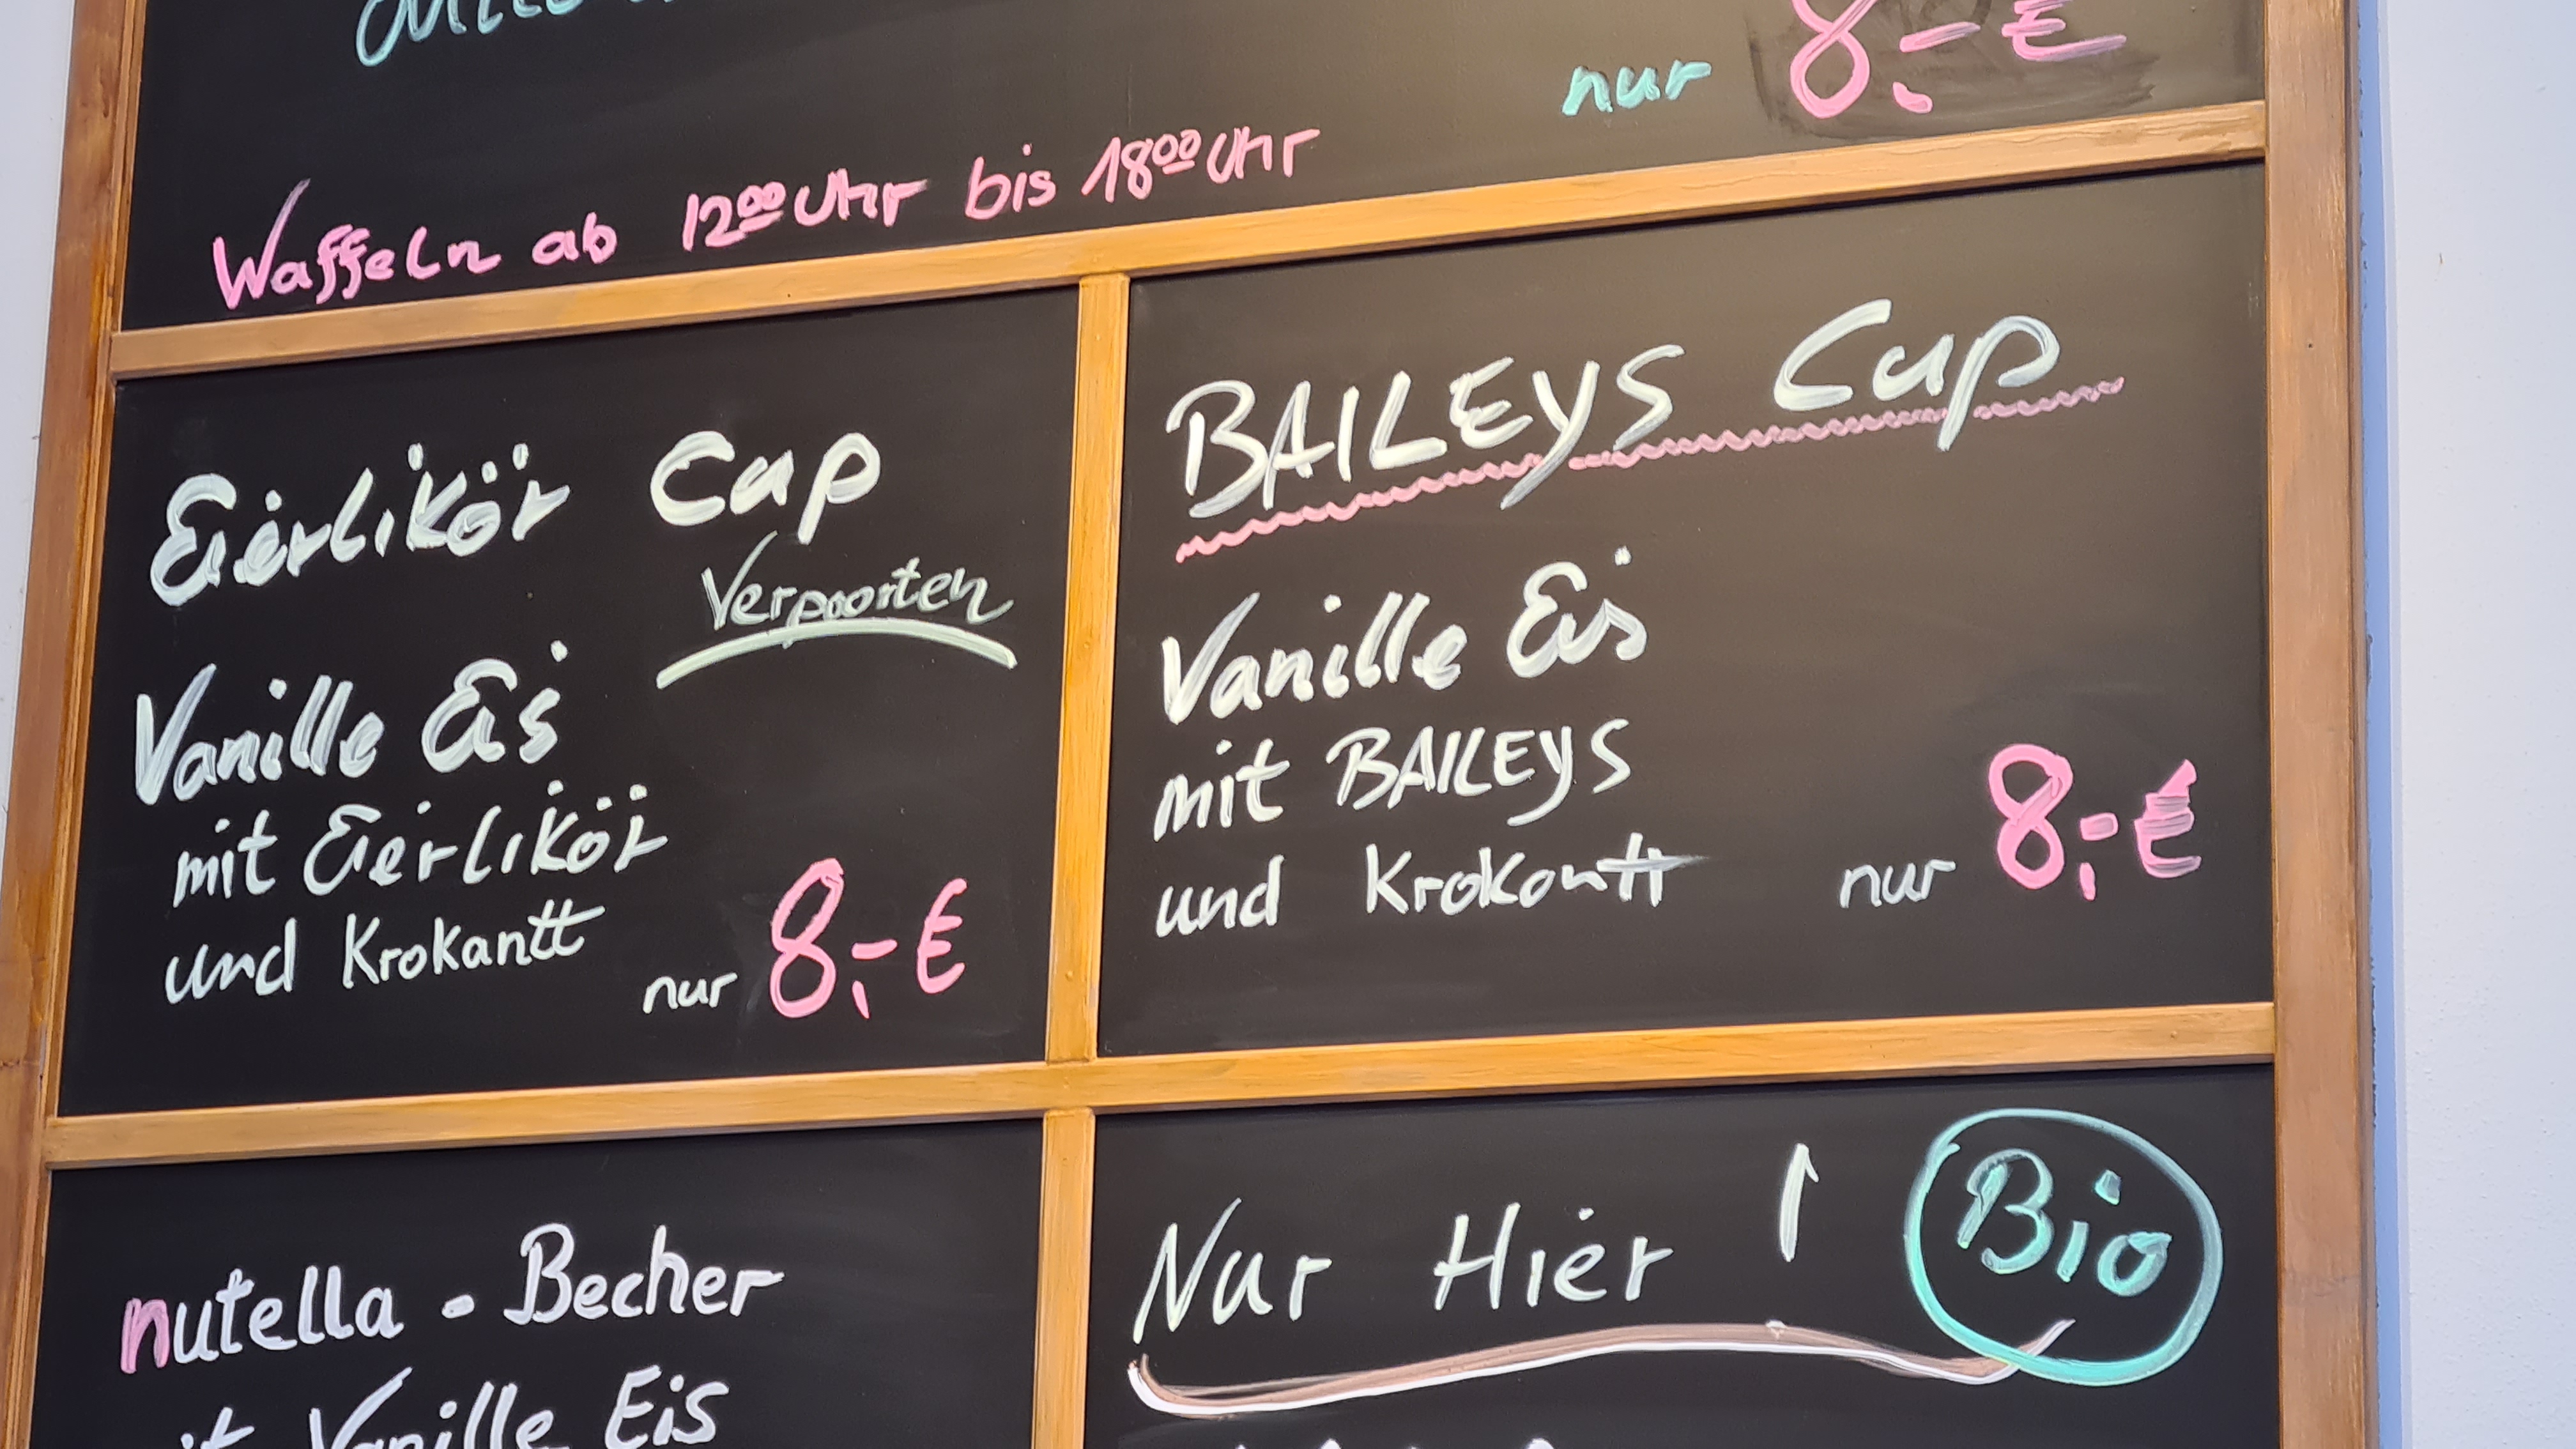 nur 8.-€
Waffeln ab 12⁰⁰ Uhr bis 18⁰⁰ Uhr
Eierlikör Cup
Verpoorten
Vanille Eis
mit Eierlikör
und Krokantt
nur 8,-€
BAILEYS Cup
Vanille Eis
mit BAILEYS
und Krokantt
nur 8,-€
nutella - Becher
Vanille Eis
Nur Hier !
Bio